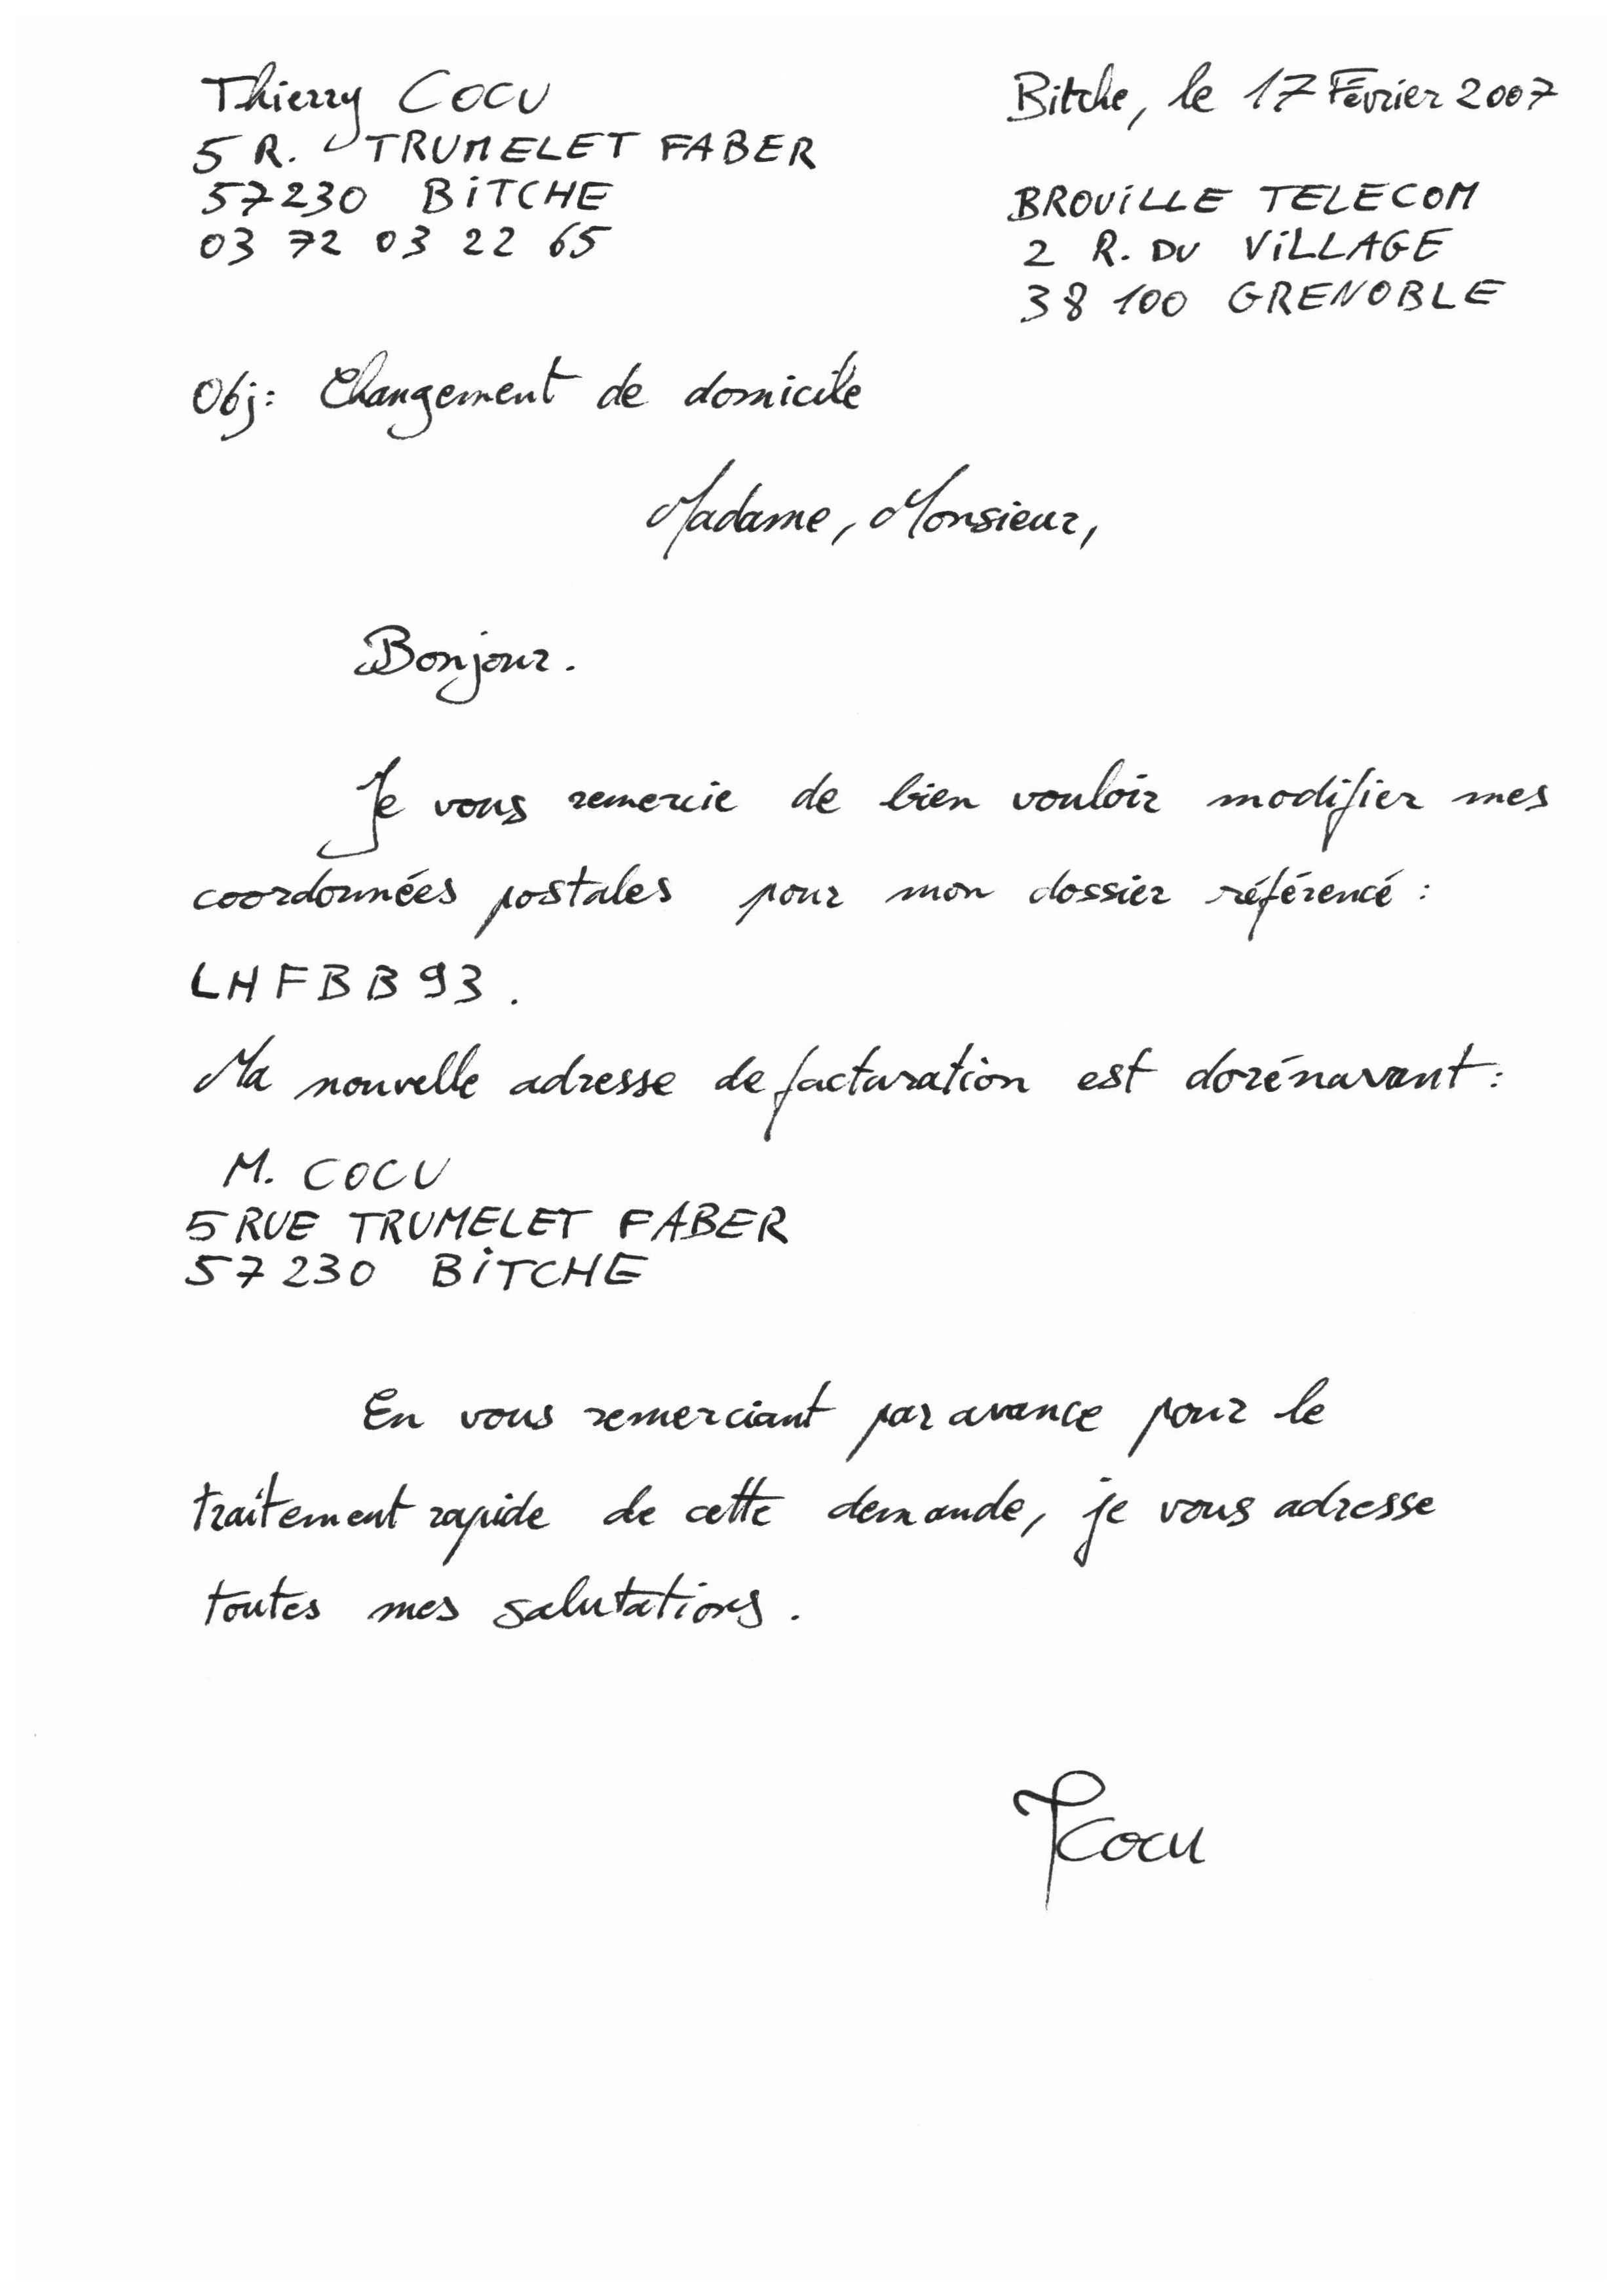 Thierry COCU
5 R. TRUMELET FABER
57230 BiTCHE
03 72 03 22 65
Bitche, le 17 Février 2007
BROUiLLE TELECOM
2 R. DU ViLLAGE
38 100 GRENOBLE
Obj: Changement de domicile
Madame, Monsieur,
Bonjour.
Je vous remercie de bien vouloir modifier mes
coordonnées postales pour mon dossier référencé :
LHFBB93.
Ma nouvelle adresse de facturation est dorénavant :
M. COCU
5 RUE TRUMELET FABER
57230 BiTCHE
En vous remerciant par avance pour le
traitement rapide de cette demande, je vous adresse
toutes mes salutations.
TCocu